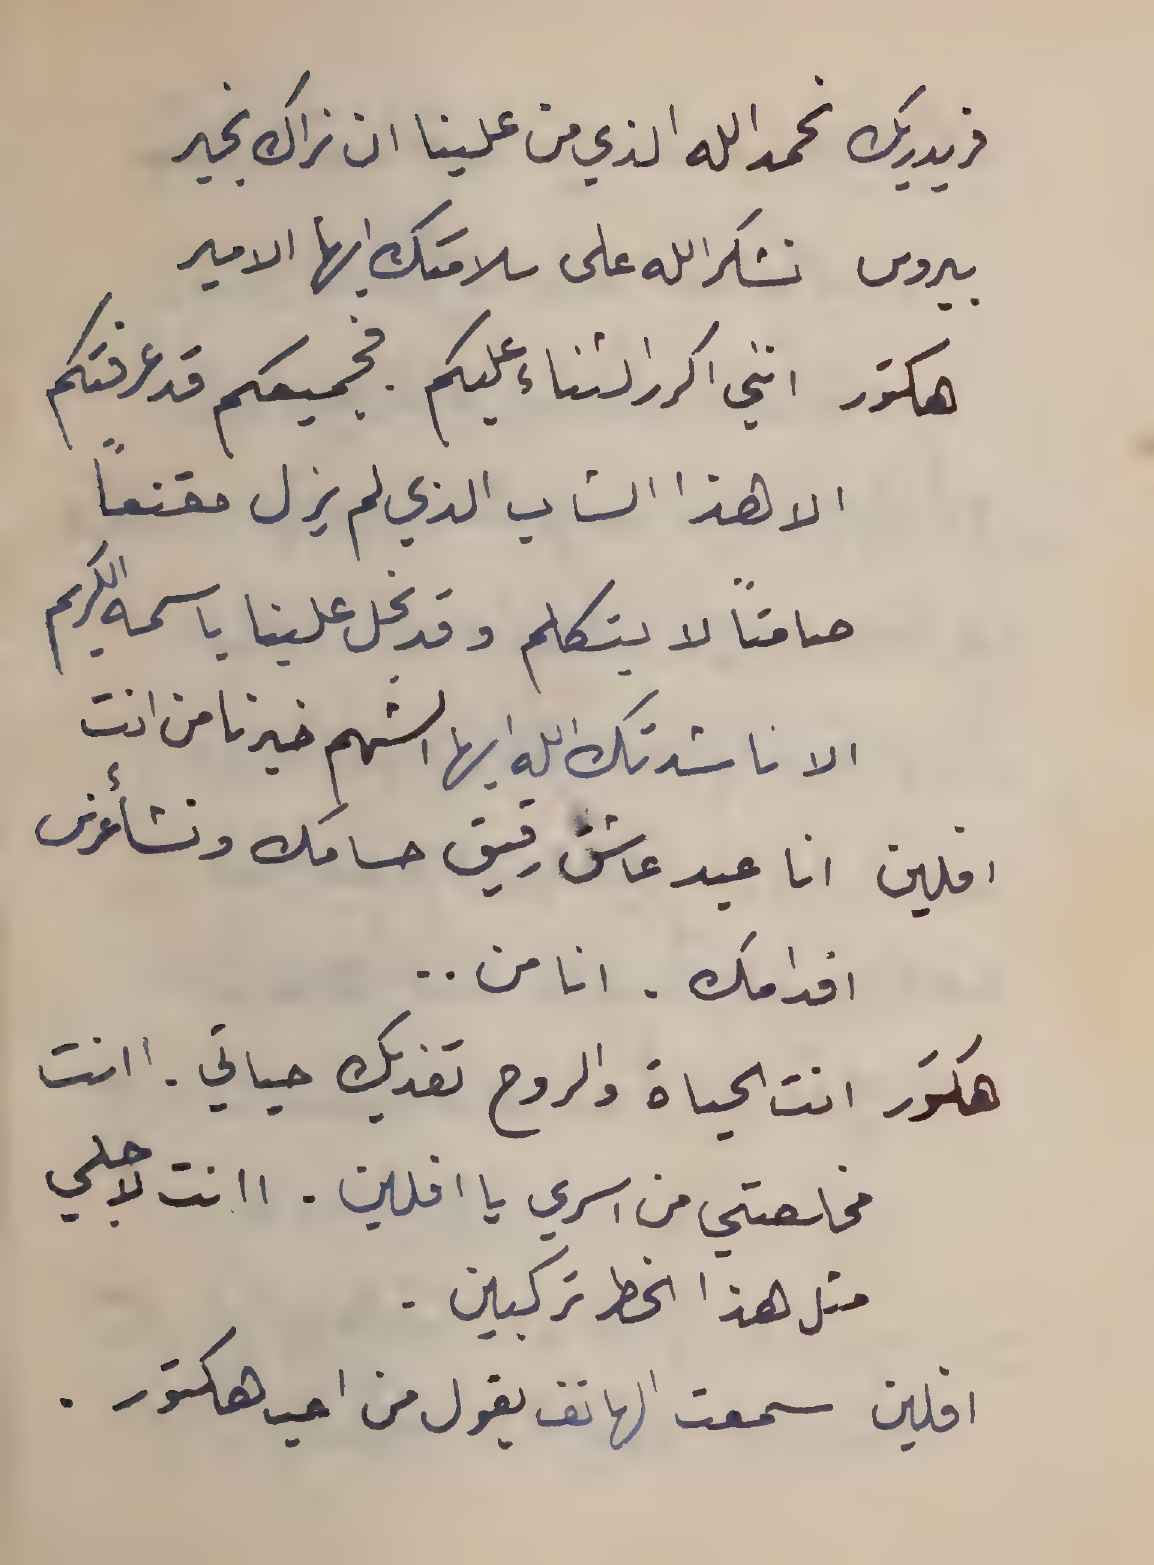 فريدريك نحمد الله الذي من علينا ان نراك بخير
بيروس نشكر الله على سلامتك ايها الامير
هكتور انني اكرر الثناء عليكم . فجميعكم قد عرفتكم
الا هذا الشاب الذي لم يزل مقنعاً
صامتاً لا يتكلم وقد بخل علينا باسمه الكريم
الا ناشدتك الله ايها الشهم خبرنا من انت
افلين انا عبد عاشق رقيق حسامك ونشأ غرس
اقدامك . انا من ..
هكتور انت الحياة والروح تفديك حياتي . اانت
مخلصتي من اسري يا افلين . اانت لاجلي
مثل هذا الخطر تركبين .
افلين سمعت الهاتف يقول من احب هكتور .